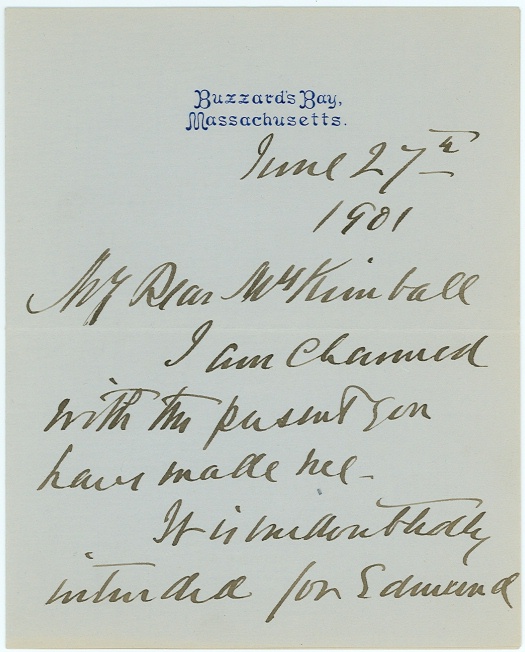 Buzzard's Bay,
Massachusetts.
June 27th
1901
My Dear Mr Kimball
I am charmed
with the present you
have made me.
It is undoubtedly
intended for Edmund